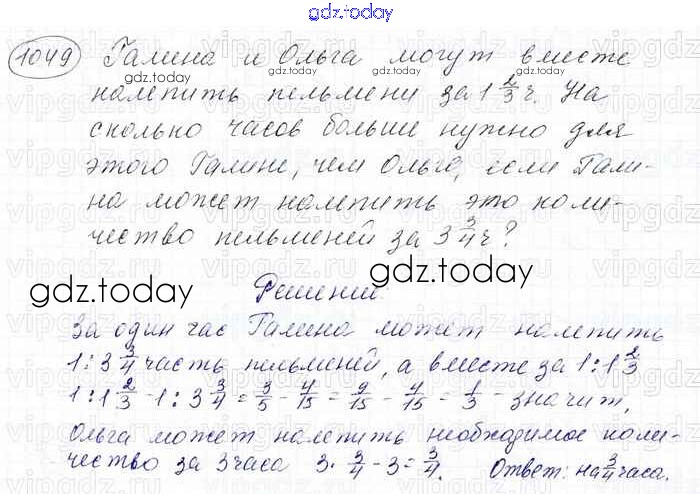 gdz.today
1049 Галина и Ольга могут вместе
gdz.today gdz.today
налепить пельмени за 1 2/3 ч. На
сколько часов больше нужно для
этого Галине, чем Ольге, если Гали-
на может налепить это коли-
чество пельменей за 3 3/4 ч?
gdz.today gdz.today
Решение.
За один час Галина может налепить
1 : 3 3/4 часть пельменей, а вместе за 1 : 1 2/3
1 : 1 2/3 - 1 : 3 3/4 = 3/5 - 4/15 = 9/15 - 4/15 = 1/3 - значит,
Ольга может налепить необходимое коли-
чество за 3 часа 3 · 3/4 - 3 = 3/4. Ответ: на 3/4 часа.
gdz.today gdz.today